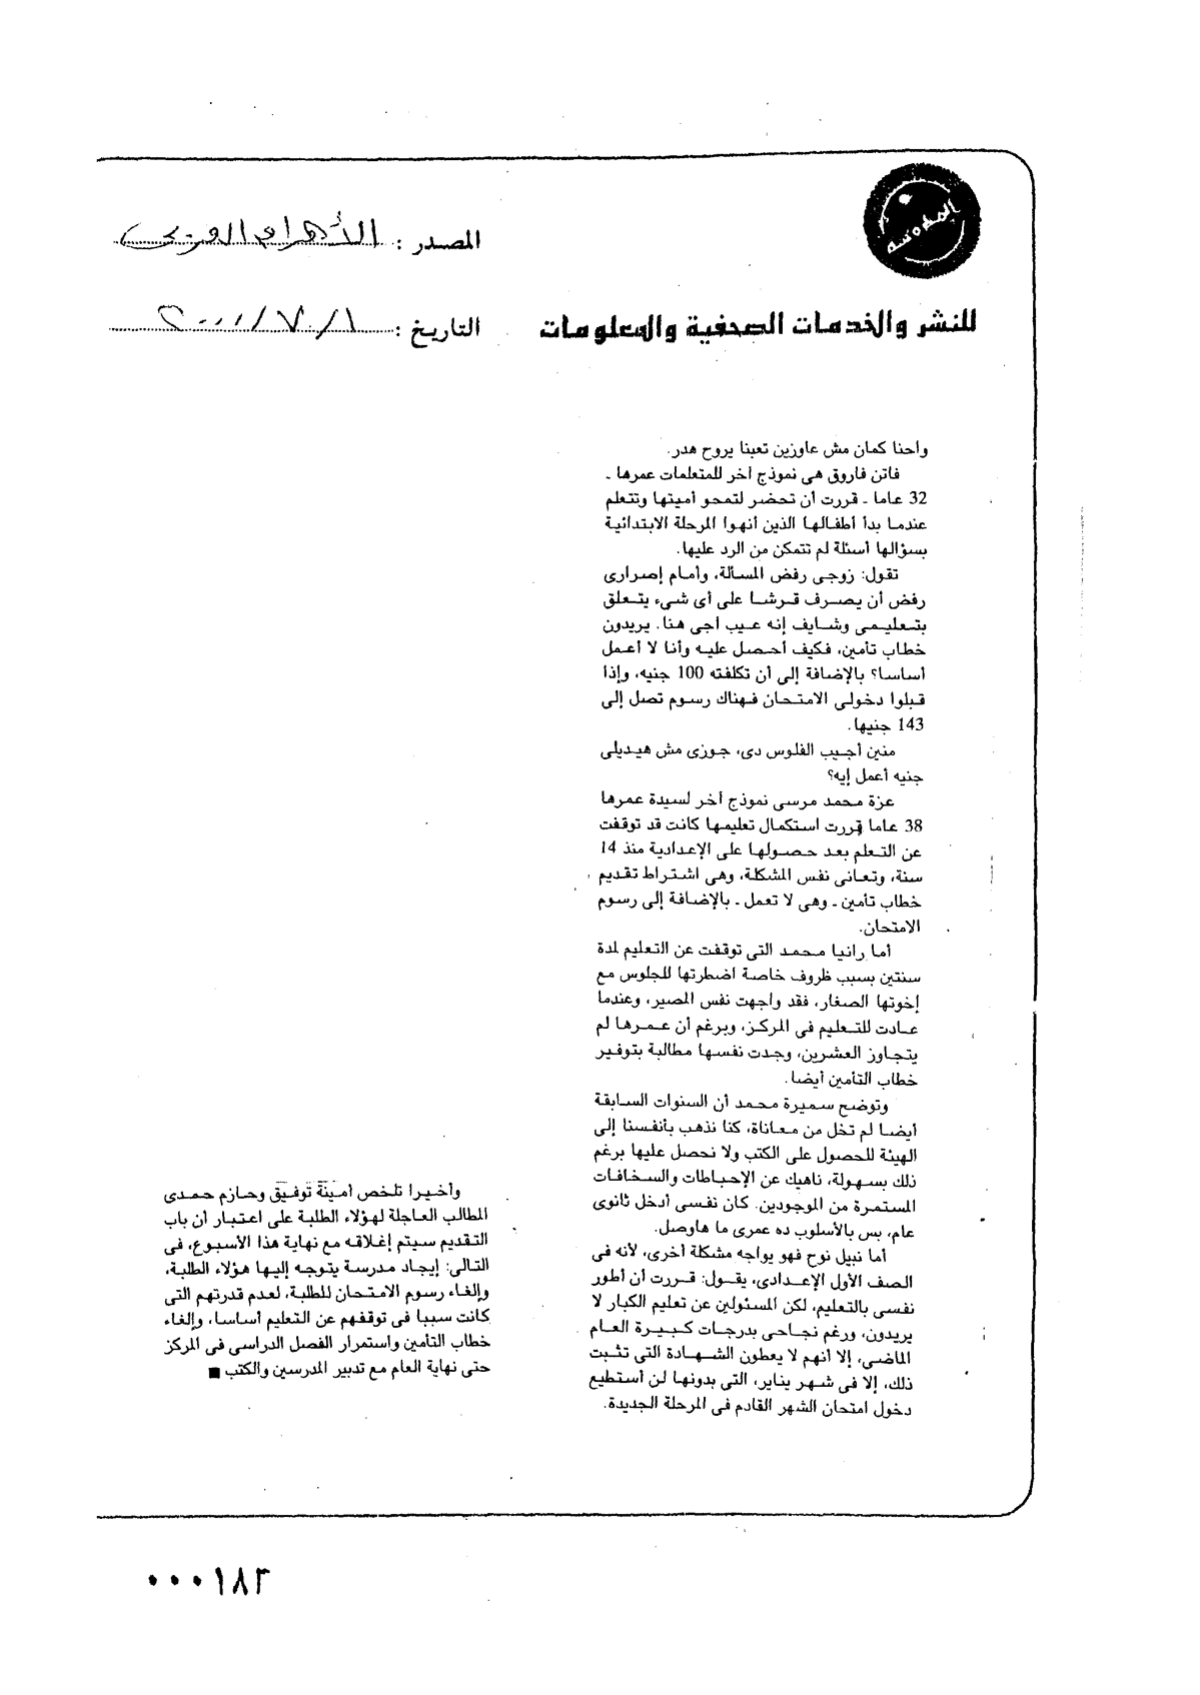 المحروسة
المصدر : الأهرام العربى
للنشر والخدمات الصحفية والمعلومات
التاريخ :
واحنا كمان مش عاوزين تعبنا يروح هدر.
فاتن فاروق هى نموذج آخر للمتعلمات عمرها ـ
32 عاما ـ قررت أن تحضر لتمحو أميتها وتتعلم
عندما بدأ أطفالها الذين أنهوا المرحلة الابتدائية
بسؤالها أسئلة لم تتمكن من الرد عليها.
تقول: زوجى رفض المسألة، وأمام إصرارى
رفض أن يصرف قرشا على أى شىء يتعلق
بتعليمى وشايف إنه عيب أجى هنا. يريدون
خطاب تأمين، فكيف أحصل عليه وأنا لا أعمل
أساسا؟ بالإضافة إلى أن تكلفته 100 جنيه، وإذا
قبلوا دخولى الامتحان فهناك رسوم تصل إلى
143 جنيها.
منين أجيب الفلوس دى، جوزى مش هيديلى
جنيه أعمل إيه؟
عزة محمد مرسى نموذج آخر لسيدة عمرها
38 عاما قررت استكمال تعليمها كانت قد توقفت
عن التعلم بعد حصولها على الإعدادية منذ 14
سنة، وتعانى نفس المشكلة، وهى اشتراط تقديم
خطاب تأمين ـ وهى لا تعمل ـ بالإضافة إلى رسوم
الامتحان.
أما رانيا محمد التى توقفت عن التعليم لمدة
سنتين بسبب ظروف خاصة اضطرتها للجلوس مع
إخوتها الصغار، فقد واجهت نفس المصير، وعندما
عادت للتعليم فى المركز، وبرغم أن عمرها لم
يتجاوز العشرين، وجدت نفسها مطالبة بتوفير
خطاب التأمين أيضا.
وتوضح سميرة محمد أن السنوات السابقة
أيضا لم تخل من معاناة، كنا نذهب بأنفسنا إلى
الهيئة للحصول على الكتب ولا نحصل عليها برغم
ذلك بسهولة، ناهيك عن الإحباطات والسخافات
المستمرة من الموجودين. كان نفسى أدخل ثانوى
عام، بس بالأسلوب ده عمرى ما هاوصل.
أما نبيل نوح فهو يواجه مشكلة أخرى، لأنه فى
الصف الأول الإعدادى، يقول: قررت أن أطور
نفسى بالتعليم، لكن المسئولين عن تعليم الكبار لا
يريدون، ورغم نجاحى بدرجات كبيرة العام
الماضى، إلا أنهم لا يعطون الشهادة التى تثبت
ذلك، إلا فى شهر يناير، التى بدونها لن أستطيع
دخول امتحان الشهر القادم فى المرحلة الجديدة.
وأخيرا تلخص أمينة توفيق وحازم حمدى
المطالب العاجلة لهؤلاء الطلبة على اعتبار أن باب
التقديم سيتم إغلاقه مع نهاية هذا الأسبوع، فى
التالى: إيجاد مدرسة يتوجه إليها هؤلاء الطلبة،
وإلغاء رسوم الامتحان للطلبة، لعدم قدرتهم التى
كانت سببا فى توقفهم عن التعليم أساسا، وإلغاء
خطاب التأمين واستمرار الفصل الدراسى فى المركز
حتى نهاية العام مع تدبير المدرسين والكتب ■
٠٠٠١٨٣